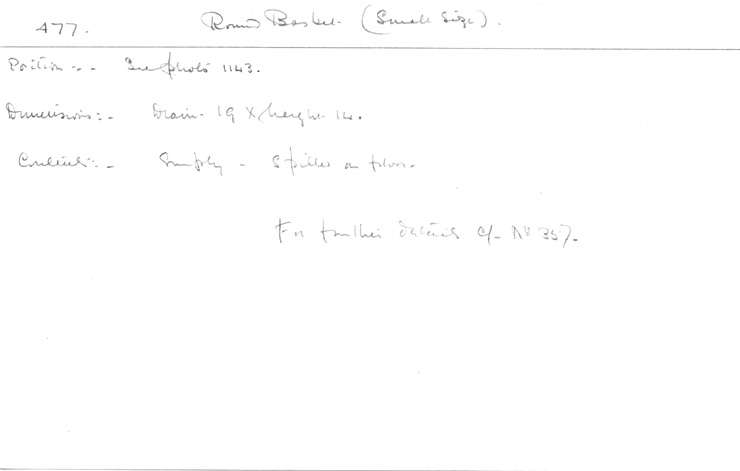 477. Round Basket. (Small Size).
Position :- See photo 1143.
Dimensions :- Diam. 19 x height. 14.
Contents :- Empty - Spilled on floor.
For further details cf. No 357.